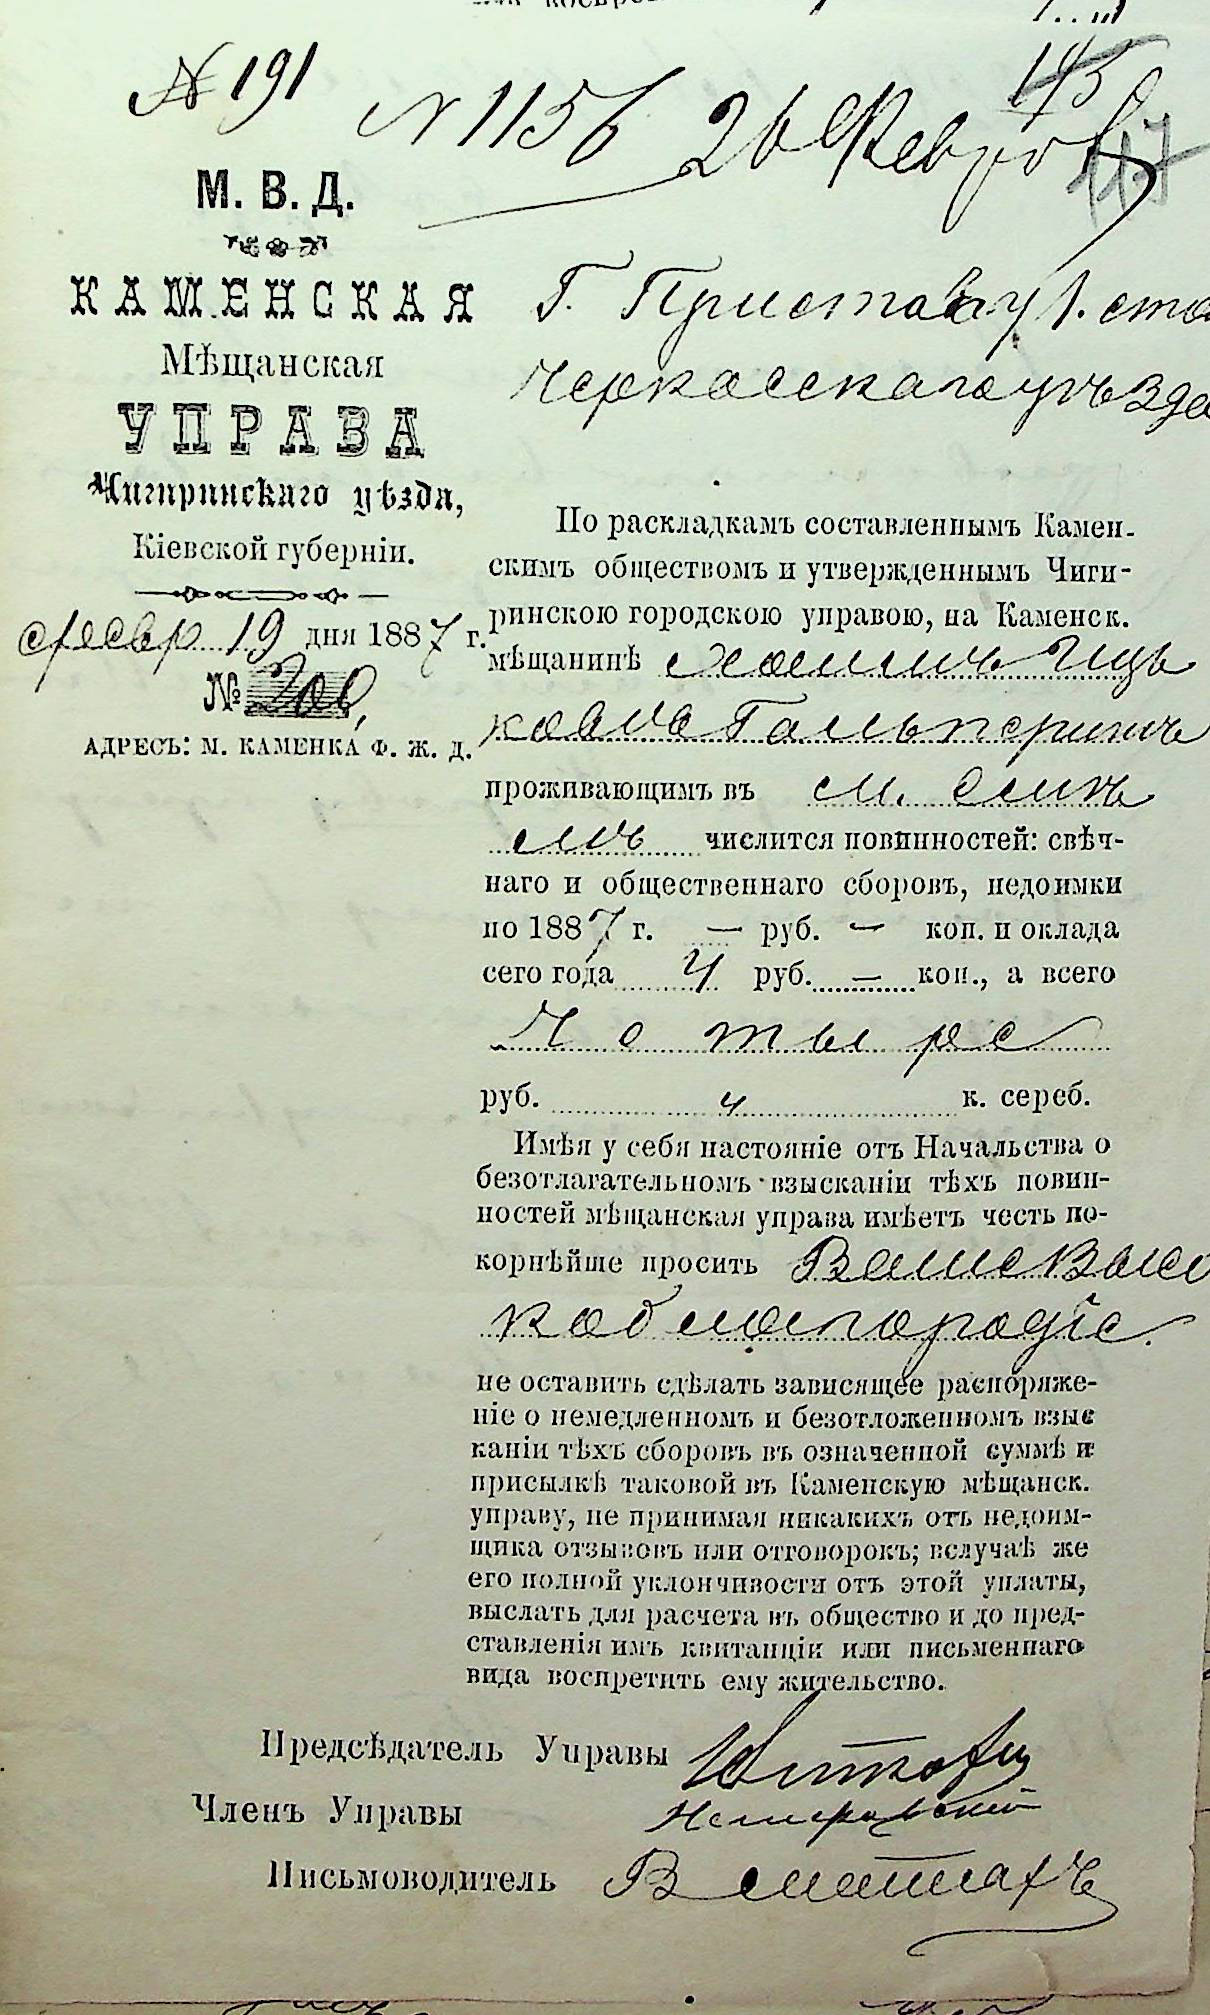 № 191
№ 1156 26 Февраля
145
117
М. В. Д.
КАМЕНСКАЯ
Мѣщанская
УПРАВА
Чигиринскаго уѣзда,
Кіевской губерніи.
февр 19 дня 1887 г.
№ 200
АДРЕСЪ: М. КАМЕНКА Ф. Ж. Д.
Г. Приставу 1. ста
Черкасскаго уѣзда
По раскладкамъ составленнымъ Камен-
скимъ обществомъ и утвержденнымъ Чиги-
ринскою городскою управою, на Каменск.
мѣщанинѣ Хаимъ Иць
ковъ Гальперинъ
проживающимъ въ м.
числится повинностей: свѣч-
наго и общественнаго сборовъ, недоимки
по 1887 г. — руб. — коп. и оклада
сего года 4 руб. — коп., а всего
Четыре
руб. к. сереб.
Имѣя у себя настояніе отъ Начальства о
безотлагательномъ взысканіи тѣхъ повин-
ностей мѣщанская управа имѣетъ честь по-
корнѣйше просить Ваше Высо
коблагородіе.
не оставить сдѣлать зависящее распоряже-
ніе о немедленномъ и безотложенномъ взыс
каніи тѣхъ сборовъ въ означенной суммѣ и
присылкѣ таковой въ Каменскую мѣщанск.
управу, не принимая никакихъ отъ недоим-
щика отзывовъ или отговорокъ; вслучаѣ же
его полной уклончивости отъ этой уплаты,
выслать для расчета въ общество и до пред-
ставленія имъ квитанціи или письменнаго
вида воспретить ему жительство.
Предсѣдатель Управы
Членъ Управы
Письмоводитель В